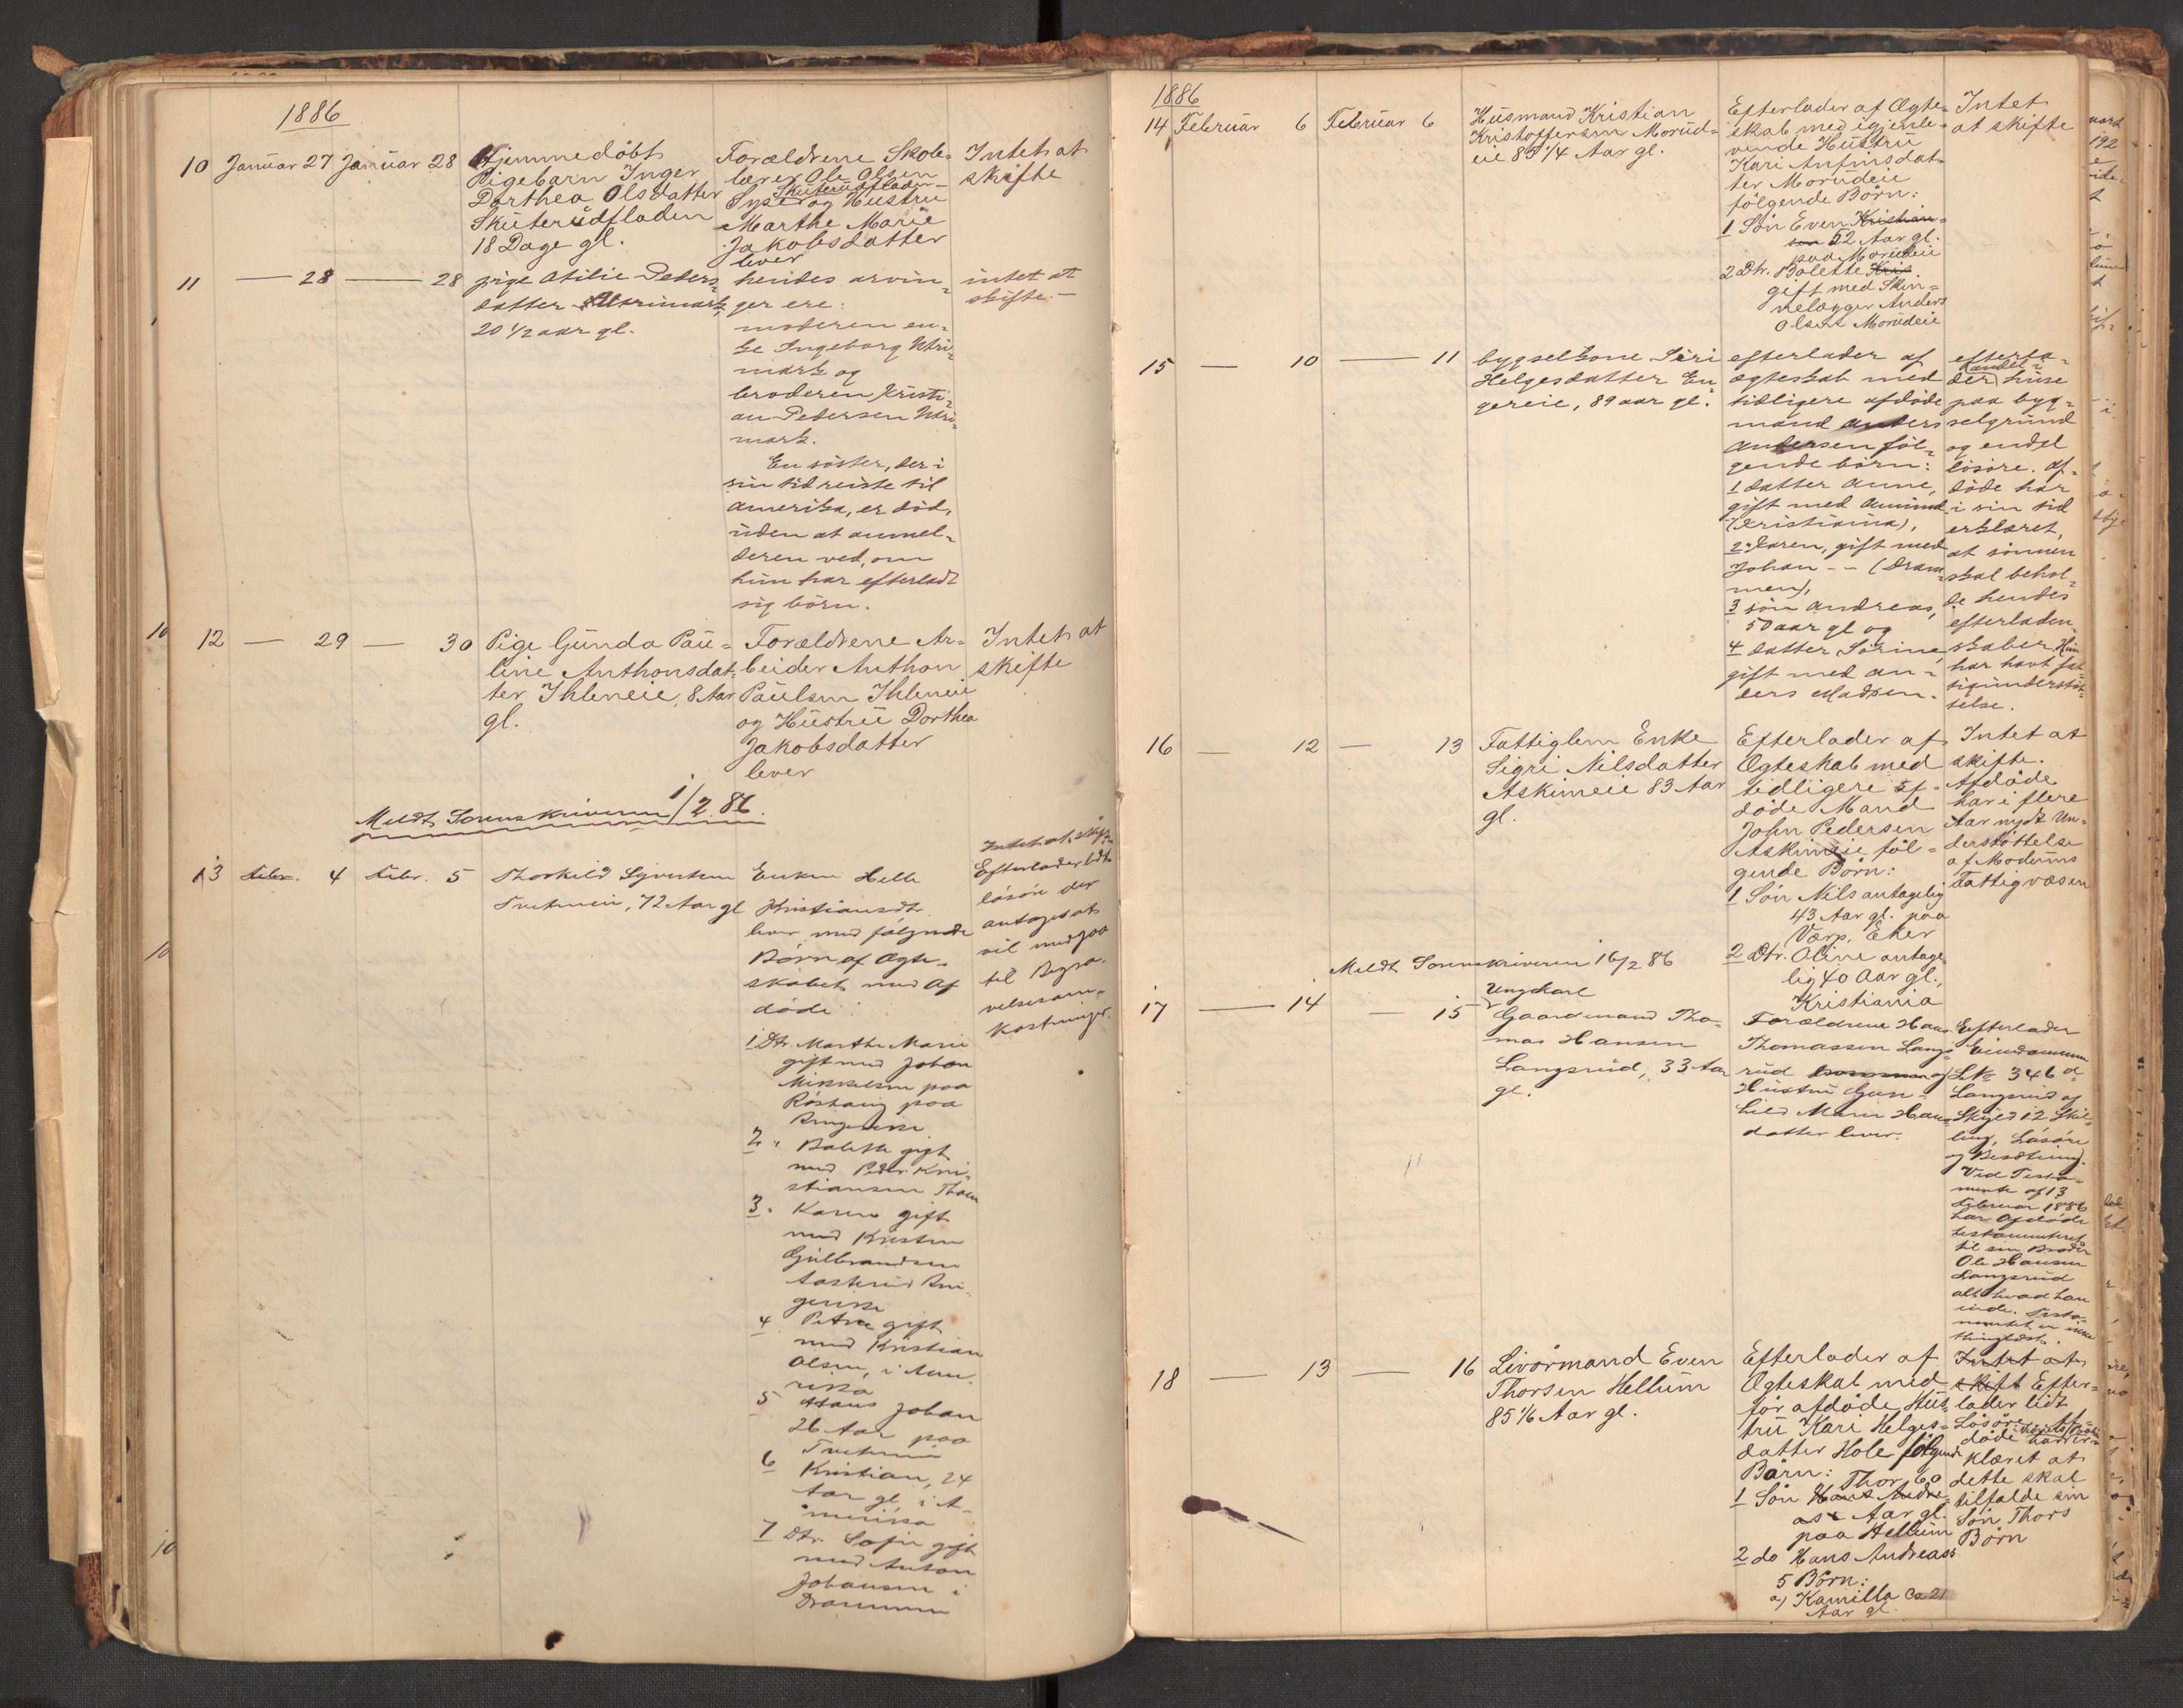 1886
10 Januar 27 Januar 28
Hjemmedöbt
Pigebarn Inger
Dorthea Olsdatter
Skuterudfladen
18 Dage gl.
Forældrene Skole-
lærer Ole Olsen
Skuterudfladen
og Hustru
Marthe Marie
Jakobsdatter
lever
Intet at
skifte
11 — 28 — 28
pige Otilie Peders-
datter Utrimark,
20 1/2 aar gl.
hendes arvin-
ger ere:
moderen en-
ke Ingeborg Utri-
mark og
broderen Kristi-
an Pedersen Utri-
mark.
En söster, der i
sin tid reiste til
Amerika, er död,
uden at anmel-
deren ved, om
hun har efterladt
sig börn.
intet at
skifte.—
12 — 29 — 30
Pige Gunda Pau-
line Anthonsdat-
ter Ihleneie, 8 Aar
gl.
Forældrene Ar-
beider Anthon
Paulsen Ihleneie
og Hustru Dorthea
Jakobsdatter
lever
Intet at
skifte
Meldt Sorenskriveren 1/2 86.
13 Febr. 4 Febr. 5
Thorkild Syvertsen
72 Aar gl
Enken Helle
Kristiansdtr.
lever med følgende
Börn af Ægte-
skabet med Af
döde:
1 Dtr. Marthe Marie
gift med Johan
Mikkelsen paa
paa
Ringerike
2 " Bolette gift
med Peder Kri-
stiansen
3 " Karen gift
med Kristen
Gulbrandsen
Rin-
gerike
4 Petra gift
med Kristian
Olsen, i Ame-
rika
5 Hans Johan
26 Aar paa
6 Kristian, 24
Aar gl, i A-
merika
7 Dtr. Sofie gift
med Anton
Johansen i
Drammen
Intet at skifte
Efterlader lidt
lösöre der
antages at
vil medgaa
til Begra-
velsesom-
kostninger.
1886
14 Februar 6 Februar 6
Husmand Kristian
Kristoffersen Morud-
eie 85 1/4 Aar gl.
Efterlader af Ægte-
skab med igjenle-
vende Hustru
Kari Anfinsdat-
ter Morudeie
fölgende Börn:
1 Sön Even Kristian-
sen 52 Aar gl.
paa Morudeie
2 Dtr. Bolette Kris
gift med Skin-
nelægger Anders
Olsen Morudeie
Intet
at skifte
15 — 10 — 11
bygselkone Siri
Helgesdatter En-
gereie, 89 aar gl.
efterlader af
ægteskab med
tidligere afdöde
mand Anders
Andersen föl-
gende börn:
1 datter Anne,
gift med Amund
(Kristiania),
2 " Karen, gift med
Johan - - (Dram-
men),
3 sön Andreas,
50 aar gl og
4 datter Sörine,
gift med An-
ders Madsen.
efterla-
der
huse
paa byg-
selgrund
og endel
lösöre. Af-
döde har
i sin tid
erklæret,
at sönnen
skal behol-
de hendes
efterladen-
skaber. Hun
har havt fat-
tigunderstöt-
telse.
16 — 12 — 13
Fattiglem Enke
Sigri Nilsdatter
Askimeie 83 Aar
gl.
Efterlader af
Ægteskab med
tidligere af-
döde Mand
John Pedersen
Askimeie föl-
gende Börn:
1 Sön Nils antagelig
43 Aar gl. paa
Værp, Eker
2 Dtr. Oline antage-
lig 40 Aar gl.,
Kristiania
Intet at
skifte.
Afdöde
har i flere
Aar nydt Un-
derstöttelse
af Modums
Fattigvæsen
Meldt Sorenskriveren 16/2 86
17 — 14 — 15
Ungkarl
Gaardmand Tho-
mas Hansen
Langerud, 33 Aar
gl.
Forældrene Hans
Thomassen Lange-
rud og
Hustru Gun-
hild Marie Hans-
datter lever.
Efterlader
Eiendommen
L№ 346 d
Langerud af
Skyld 12 Skil-
ling, Lösöre
og Besætning.
Ved Testa-
mente af 13
Februar 1886
har Afdöde
testamenteret
til sin Broder
Ole Hansen
Langerud
alt hvad han
eiede. Testa-
mentet er ikke
thinglæst.
18 — 13 — 16
Livörmand Even
Thorsen Hellum
85 1/6 Aar gl.
Efterlader af
Ægteskab med
för afdöde Hus-
tru Kari Helges-
datter Hole fölgende
Börn:
Thor, 60
1 Sön Hans Andre-
as Aar gl.
paa Hellum
2 do Hans Andreas's
5 Börn:
a) Kamilla Ca 21
Aar gl.
Intet at
skift Efter-
lader lidt
Lösöre. Af-
döde har er-
klæret at
dette skal
tilfalde sin
Sön Thors
Börn